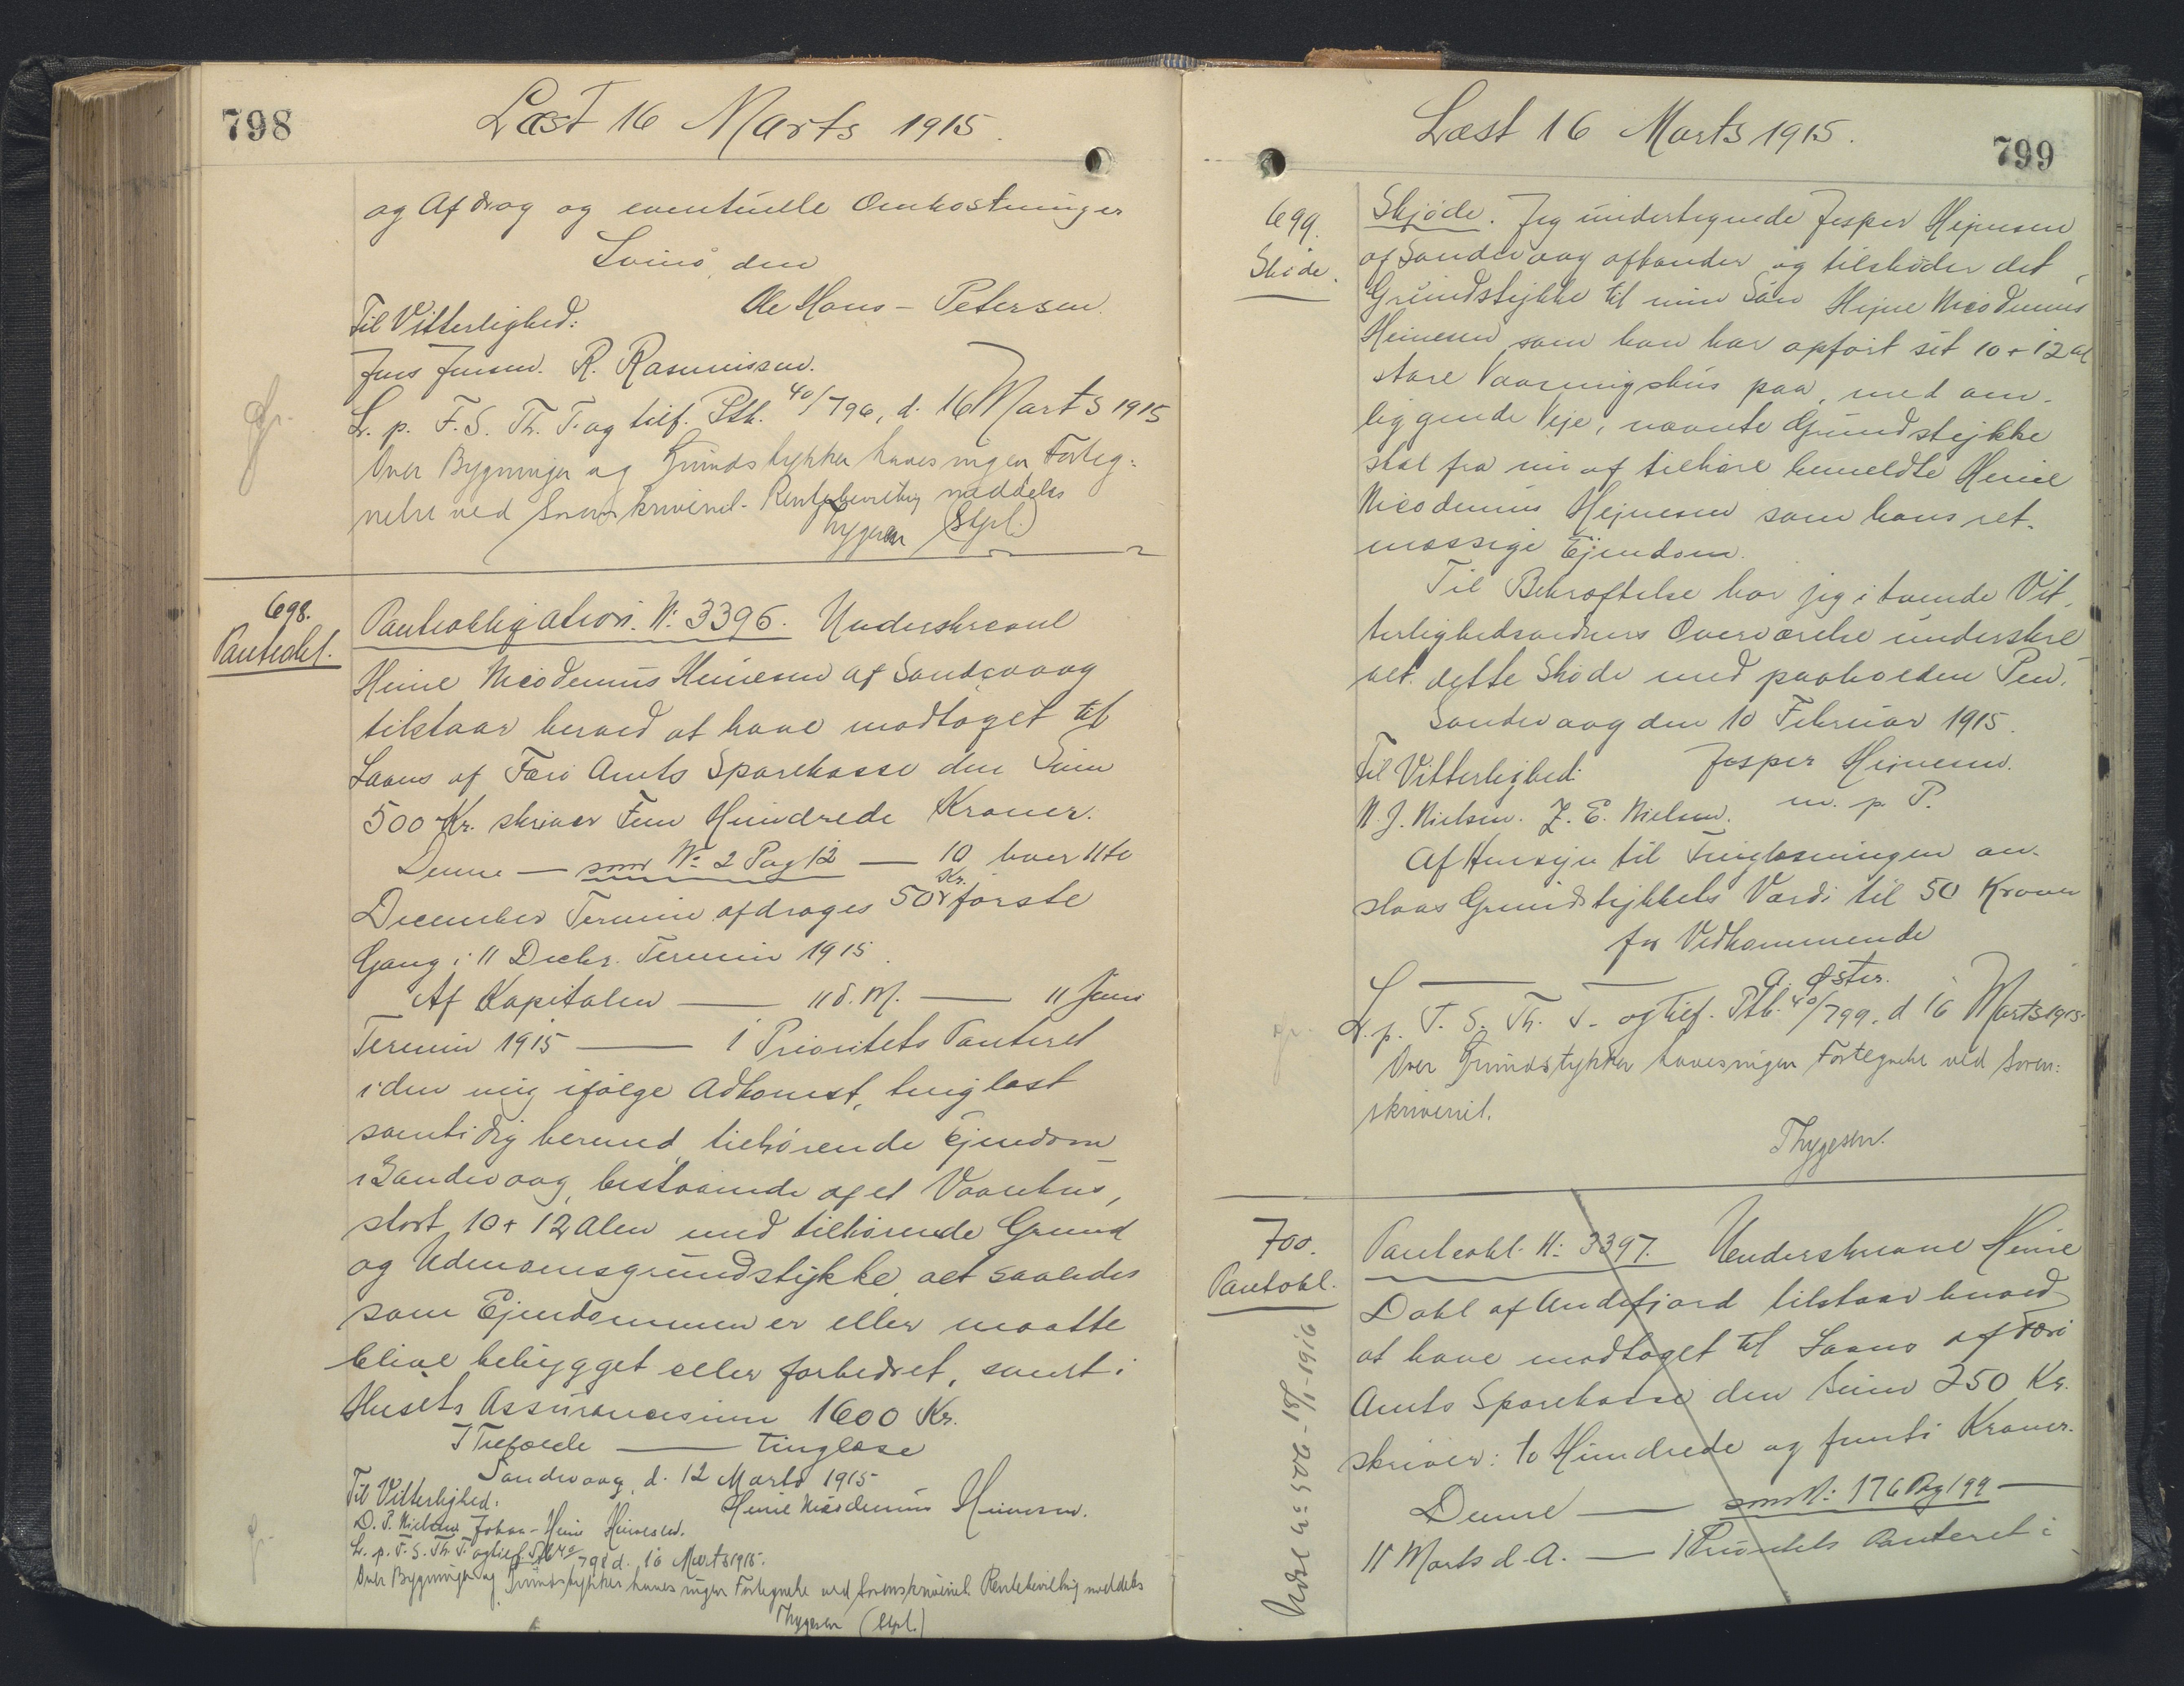 798
Læst 16 Marts 1915.
og Afdrag og eventuelle Omkostninger
Svinø, den
Ole Hans - Petersen.
Til Vitterlighed:
Jens Jensen. R. Rasmussen.
L. p. F. S. Th. T. og tilf. Ptb. 40/796, d. 16 Marts 1915
Over Bygninger og Grundstykker haves ingen Forteg=
nelse ved Sorenskriveriet. Rentebevilling meddeles
Thygesen (Stpl.)
698.
Panteobl.
Panteobligation. N: 3396. Underskrevne
Heine Nicodemus Heinesen af Sandevaag
tilstaar herved at have modtaget til
Laans af Færø Amts Sparekasse den Sum
500 Kr. skriver Fem Hundrede Kroner.
Denne — som No 2 Pag 12 — 10 hver 11te
December Termin afdrages 50 Kr. første
Gang i 11 Decbr. Termin 1915.
Af Kapitalen — 11 d. M. — 11 Juni
Termin 1915 — 1 Prioritets Panteret
i den mig ifølge Adkomst, tinglæst
samtidig hermed, tilhørende Ejendom
i Sandevaag, bestaaende af et Vaanhus,
stort 10 + 12 Alen med tilhørende Grund
og Udenomsgrundstykke, alt saaledes
som Ejendommen er eller maatte
blive bebygget eller forbedret, samt i
Husets Assurancesum 1600 Kr.
I Tilfælde — tinglæse
Sandevaag, d. 12 Marts 1915
Til Vitterlighed:
Heine Nicodemus Heinesen.
D. P. Nielsen Johan - Heine Heinesen.
L. p. F. S. Th. T. og tilf. Ptb 40/798 d. 16 Marts 1915.
Over Bygninger og Grundstykker haves ingen Fortegnelse ved Sorenskriveriet. Rentebevilling meddeles
Thygesen (Stpl.)
Læst 16 Marts 1915.
799
699.
Skøde.
Skjøde. Jeg undertegnede Jesper Hejnesen
af Sandevaag afhænder og tilskøder det
Grundstykke til min Søn Hejne Nicodemus
Heinesen som han har opført sit 10 + 12 al
store Vaaningshus paa, med om-
liggende Veje, nævnte Grundstejkke
skal fra nu af tilhøre bemeldte Heine
Nicodemus Hejnesen som hans ret-
mæssige Ejendom.
Til Bekræftelse har jeg i tvende Vit-
terlighedsvidners Overværelse underskre
vet dette Skøde med paaholden Pen.
Sandevaag den 10 Februar 1915.
Til Vitterlighed:
Jesper Hejnesen.
m. p. P.
N. J. Nielsen. J. E. Nielsen.
Af Hensyn til Tinglæsningen an-
slaas Grundstykkets Værdi til 50 Kroner
for Vedkommende
A. Øster.
L. p. F. S. Th. T. og tilf. Ptb. 40/799, d 16 Marts 1915.
Over Grundstykker haves ingen Fortegnelse ved Soren:
skriveriet.
Thygesen.
700.
Pantobl.
Udsl N: 500 - 18/1 1916
Panteobl. N: 3397. Underskrevne Heine
Dahl af Andefjord tilstaar herved
at have modtaget til Laans af Færø
Amts Sparekasse den Sum 250 Kr.
skriver: to Hundrede og femti Kroner.
Denne — som N: 176 Pag 199 —
11 Marts d. A. — 1 Prioritets Panteret i